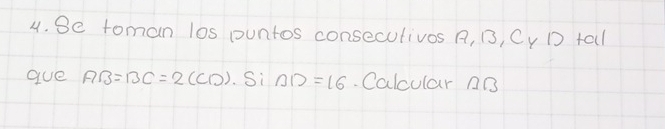 4. Se toman los puntos consecutivos A, B, C y D tal
que AB=BC=2(CD). Si AD=16. Calcular AB